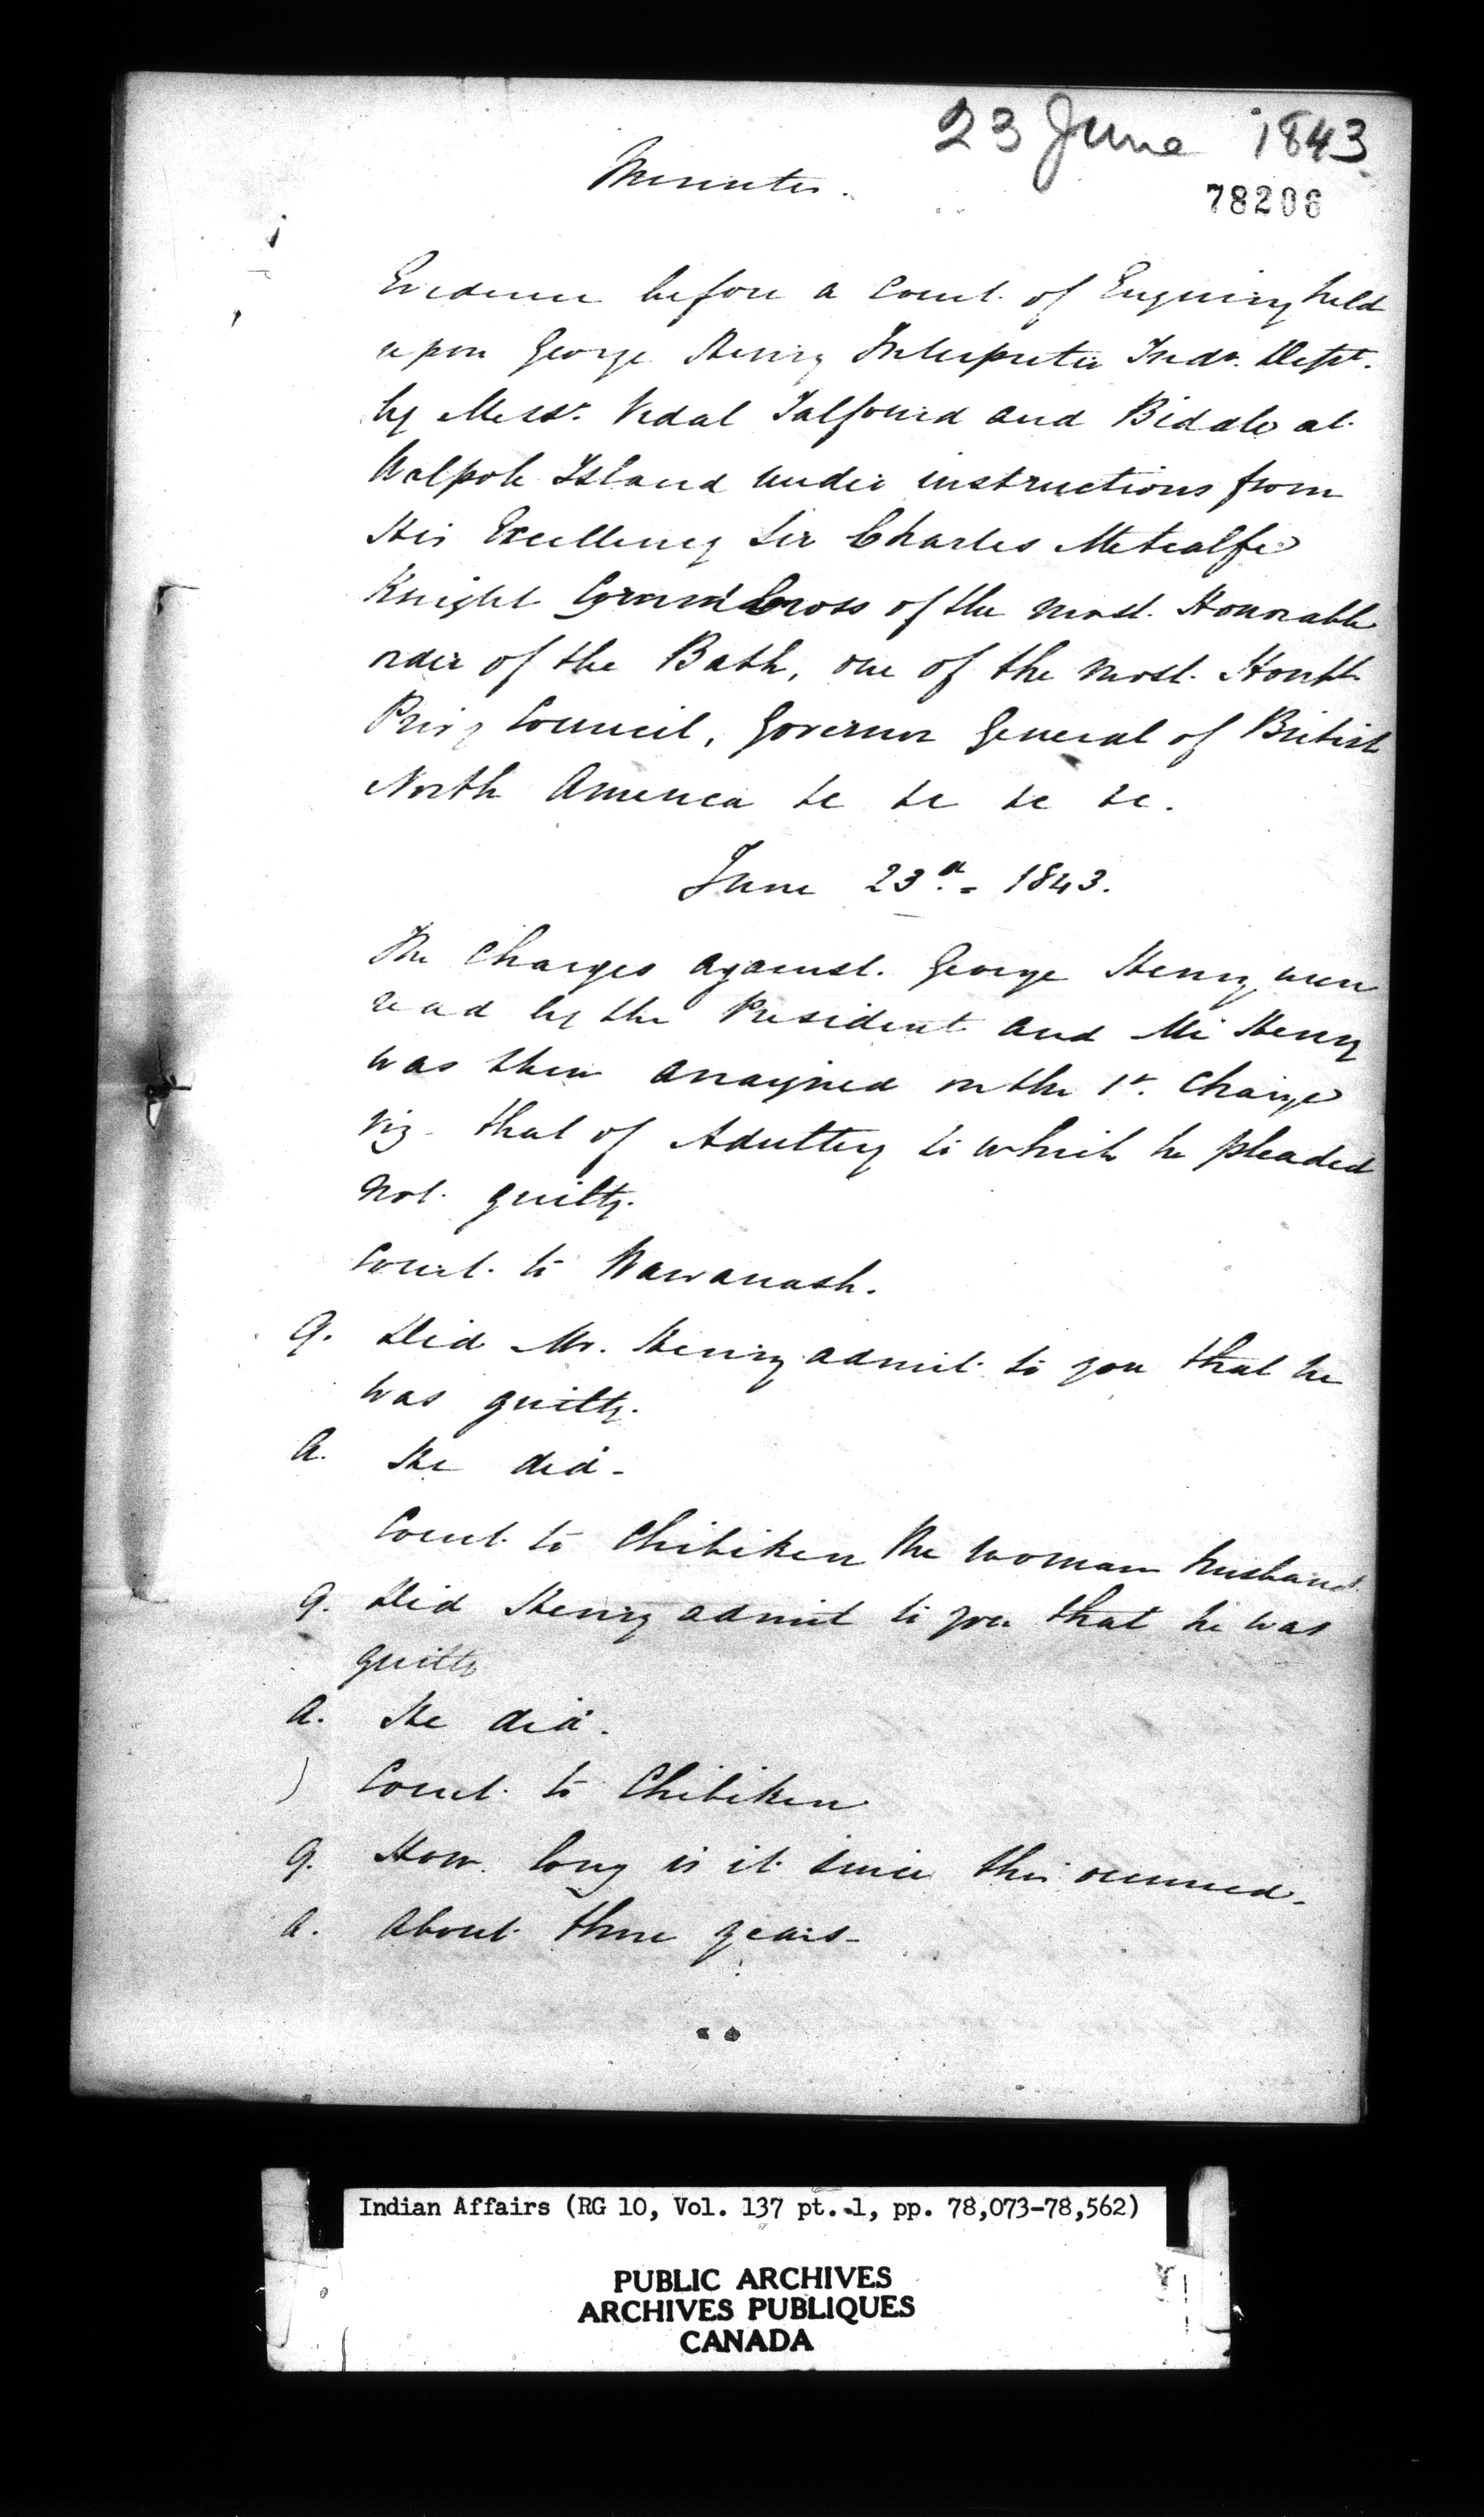 23 June 1843
Minutes.
78206
Evidence before a Court of Enquiry held
upon George Henry Interpreter Indn. Dept.
by Messrs. Vidal Talfourd and Biddle at
Walpole Island under instructions from
His Excellency Sir Charles Metcalfe
Knight Grand Cross of the most Honorable
order of the Bath, one of the most Honble
Privy Council, Governor General of British
North America &c &c &c &c.
June 23d. - 1843.
The Charges against George Henry were
read by the President and Mr Henry
was then arraigned on the 1st. Charge
viz- that of Adultery to which he pleaded
not guilty.
Court to Wawanash.
Q. Did Mr. Henry admit to you that he
was guilty.
A. He did -
Court to Chibiken the woman husband
Q. Did Henry admit to you that he was
guilty
A. He did.
Court to Chibiken
Q. How long is it since this occurred -
A. About three years -
Indian Affairs (RG 10, Vol. 137 pt. 1, pp. 78,073-78,562)
PUBLIC ARCHIVES
ARCHIVES PUBLIQUES
CANADA